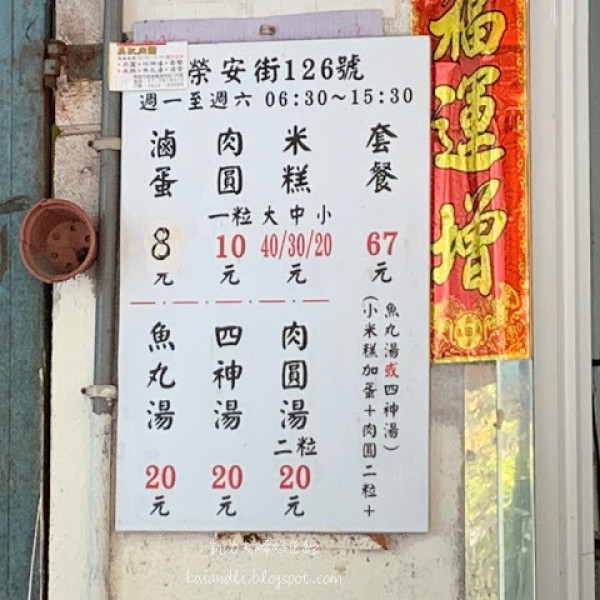 榮安街126號
週一至週六 06:30～15:30
套餐
67
元
(小米糕加蛋＋肉圓二粒＋
魚丸湯或四神湯)
米糕
大中小
40/30/20
元
肉圓
一粒
10
元
滷蛋
8
元
肉圓湯
二粒
20
元
四神湯
20
元
魚丸湯
20
元
福運增
kasandlc.blogspot.com